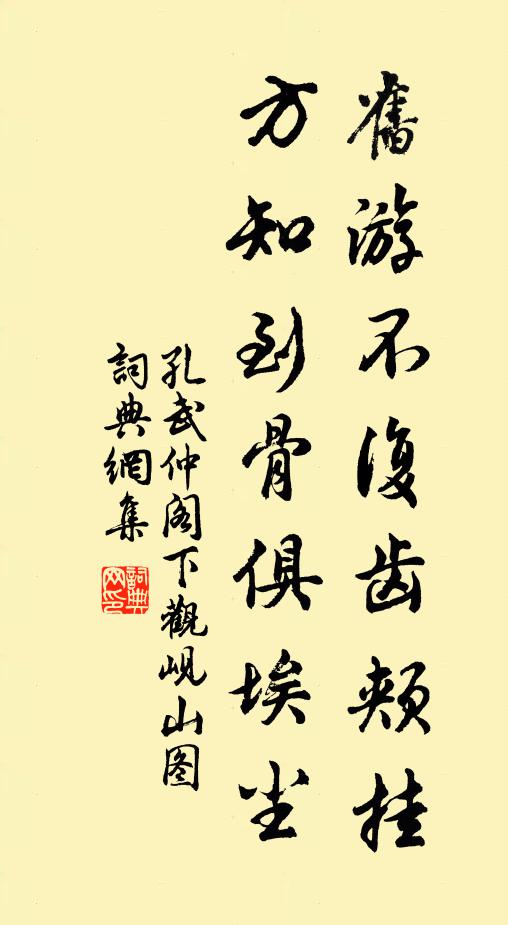 舊游不復齿颊挂
方知到骨俱埃尘
孔武仲阁下觀岘山图
詞典網集
詞典
网印